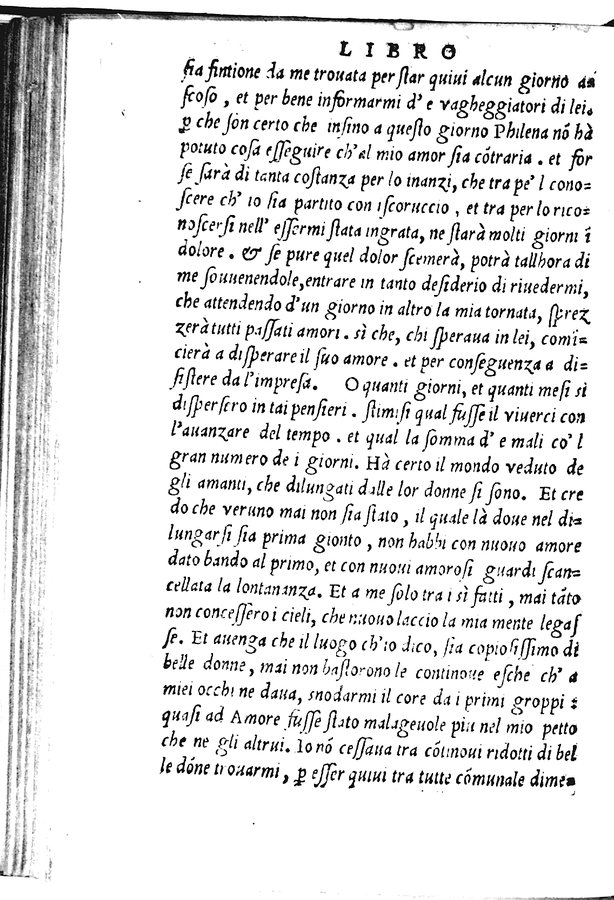 LIBRO
sia fintione da me trouata per star quiui alcun giorno as
scoso, et per bene informarmi d'e vagheggiatori di lei.
ꝑ che son certo che insino a questo giorno Philena nõ hà
potuto cosa esseguire ch'al mio amor sia cõtraria. et for
se sarà di tanta costanza per lo inanzi, che tra pe'l cono=
scere ch'io sia partito con iscoruccio, et tra per lo rico=
noscersi nell'essermi stata ingrata, ne starà molti giorni ĩ
dolore. & se pure quel dolor scemerà, potrà tallhora di
me souuenendole, entrare in tanto desiderio di riuedermi,
che attendendo d'un giorno in altro la mia tornata, sprez
zerà tutti passati amori. sì che, chi speraua in lei, comĩ=
cierà a disperare il suo amore. et per conseguenza a di=
sistere da l'impresa. O quanti giorni, et quanti mesi si
dispersero in tai pensieri. stimisi qual fusse il viuerci con
l'auanzare del tempo. et qual la somma d'e mali co'l
gran numero de i giorni. Hà certo il mondo veduto de
gli amanti, che dilungati dalle lor donne si sono. Et cre
do che veruno mai non sia stato, il quale là doue nel di=
lungarsi sia prima gionto, non habbi con nuouo amore
dato bando al primo, et con nuoui amorosi guardi scan=
cellata la lontananza. Et a me solo tra i sì fatti, mai tãto
non concessero i cieli, che nuouo laccio la mia mente legas
se. Et auenga che il luogo ch'io dico, sia copiosissimo di
belle donne, mai non bastorono le continoue esche ch'a
miei occhi ne daua, snodarmi il core da i primi groppi:
quasi ad Amore fusse stato malageuole piu nel mio petto
che ne gli altrui. Io nõ cessaua tra cõtinoui ridotti di bel
le dõne trouarmi, ꝑ esser quiui tra tutte cõmunale dime=